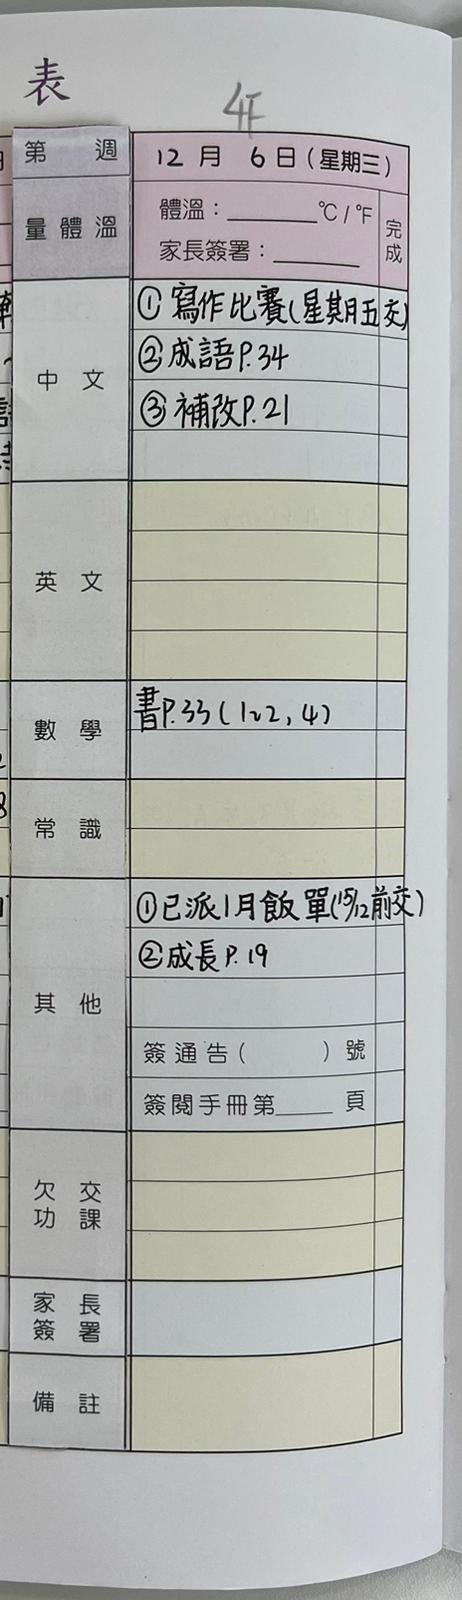 表
4F
第 週
12 月 6 日（星期三）
量 體 溫
體溫：________℃/℉
家長簽署：________
完成
中 文
① 寫作比賽(星其月五交)
② 成語P.34
③ 補改P.21
英 文
數 學
書P.33(1~2,4)
常 識
其 他
①已派1月飯單(15/12前交)
②成長P.19
簽通告( )號
簽閱手冊第_____頁
欠 交
功 課
家 長
簽 署
備 註